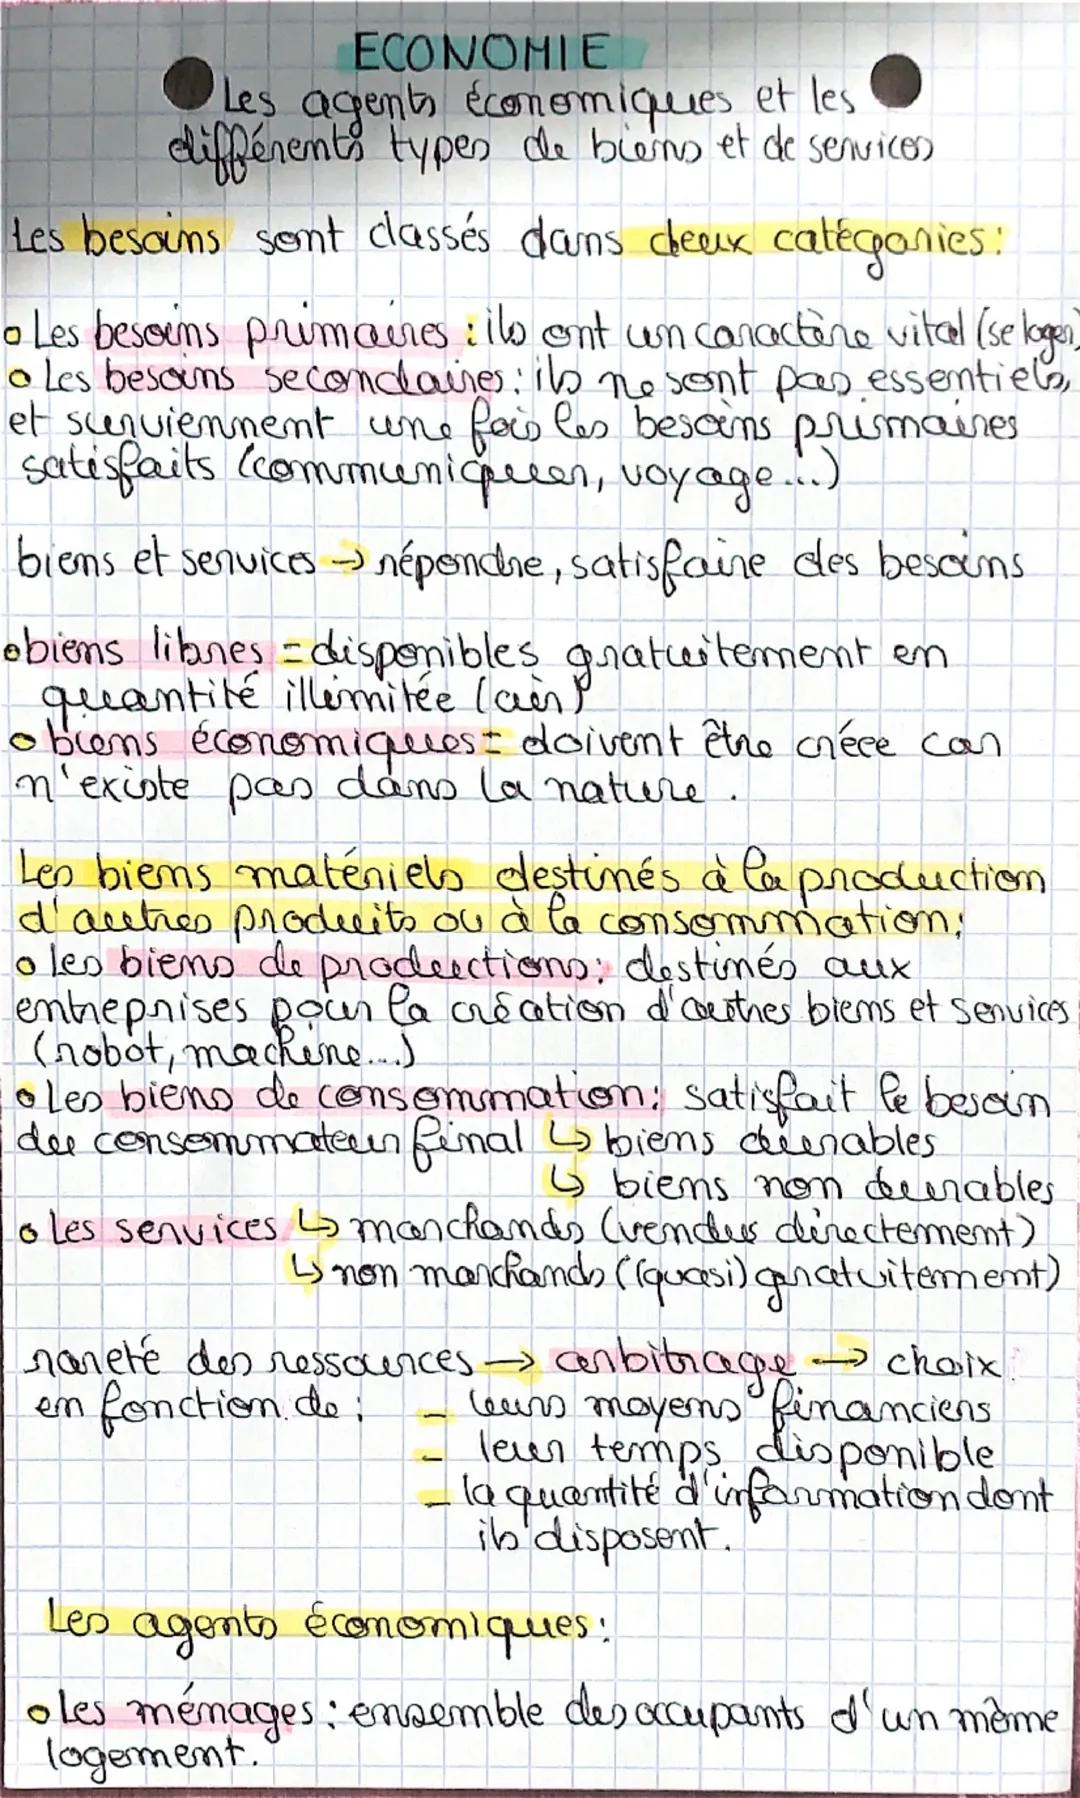 ECONOMIE
Les agents économiques et les
différents types de biens et de services
Les besoins sont classés dans deux catégories:
Les besoins primaires : ils ont un caractère vital (se loger)
Les besoins secondaires: ils ne sont pas essentiels,
et surviennent une fois les besoins primaires
satisfaits (communiquer, voyage...)
biens et services → répondre, satisfaire des besoins
biens libres = disponibles gratuitement en
quantité illimitée (air)
biens économiques = doivent être créée car
n'existe pas dans la nature.
Les biens matériels destinés à la production
d'autres produits ou à la consommation:
les biens de productions: destinés aux
entreprises pour la création d'autres biens et services
(robot, machine...)
Les biens de consommation: satisfait le besoin
du consommateur final ↳ biens durables
↳ biens non durables
Les services ↳ marchands (vendus directement)
↳ non marchands ((quasi) gratuitement)
rareté des ressources → arbitrage → choix
en fonction de : - leurs moyens financiers
- leur temps disponible
- la quantité d'information dont
ils disposent.
Les agents économiques :
Les ménages : ensemble des occupants d'un même
logement.